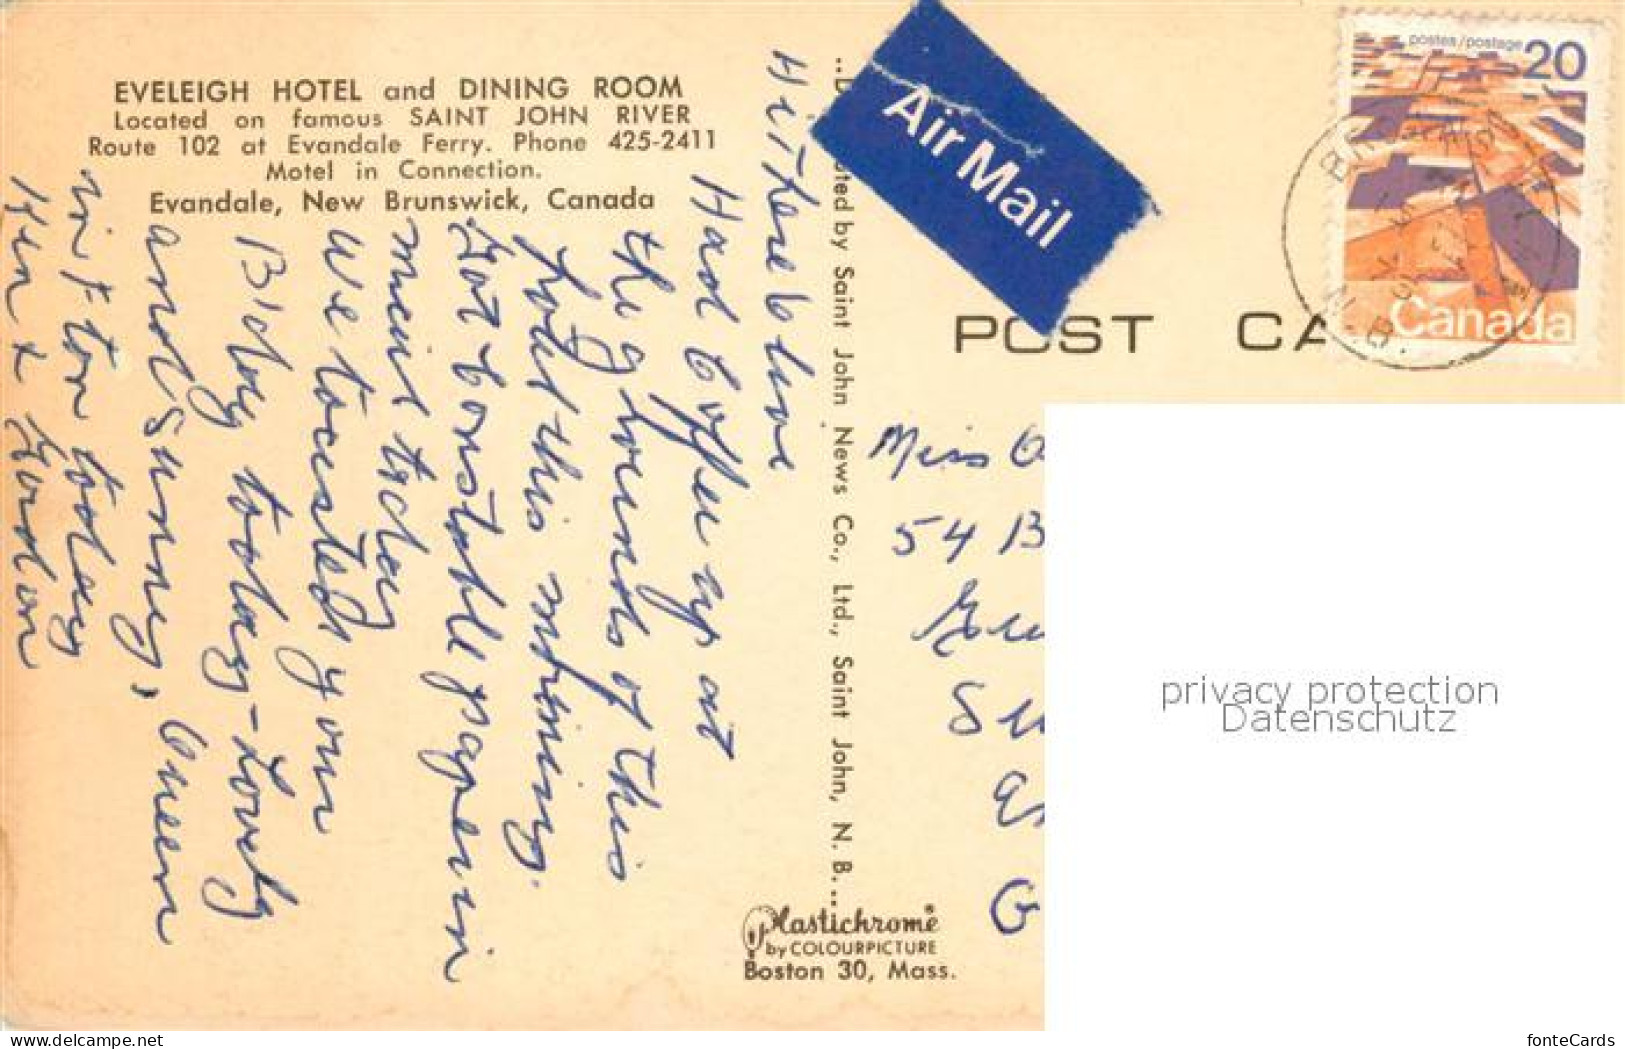 EVELEIGH HOTEL and DINING ROOM
Located on famous SAINT JOHN RIVER
Route 102 at Evandale Ferry. Phone 425-2411
Motel in Connection.
Evandale, New Brunswick, Canada
Hi there love
Had Coffee up at
the grounds of this
hotel this morning.
Got Constable paper in
mint today
we tocsted your
B'day today - Lovely
and Sunny,
in ton today
Ken & Gordon
Distributed by Saint John News Co., Ltd., Saint John, N. B.
Plastichrome®
by COLOURPICTURE
Boston 30, Mass.
Air Mail
POST CA
postes/postage 20
Canada
N.B.
Miss
54 B
privacy protection
Datenschutz
www.delcampe.net
fonteCards